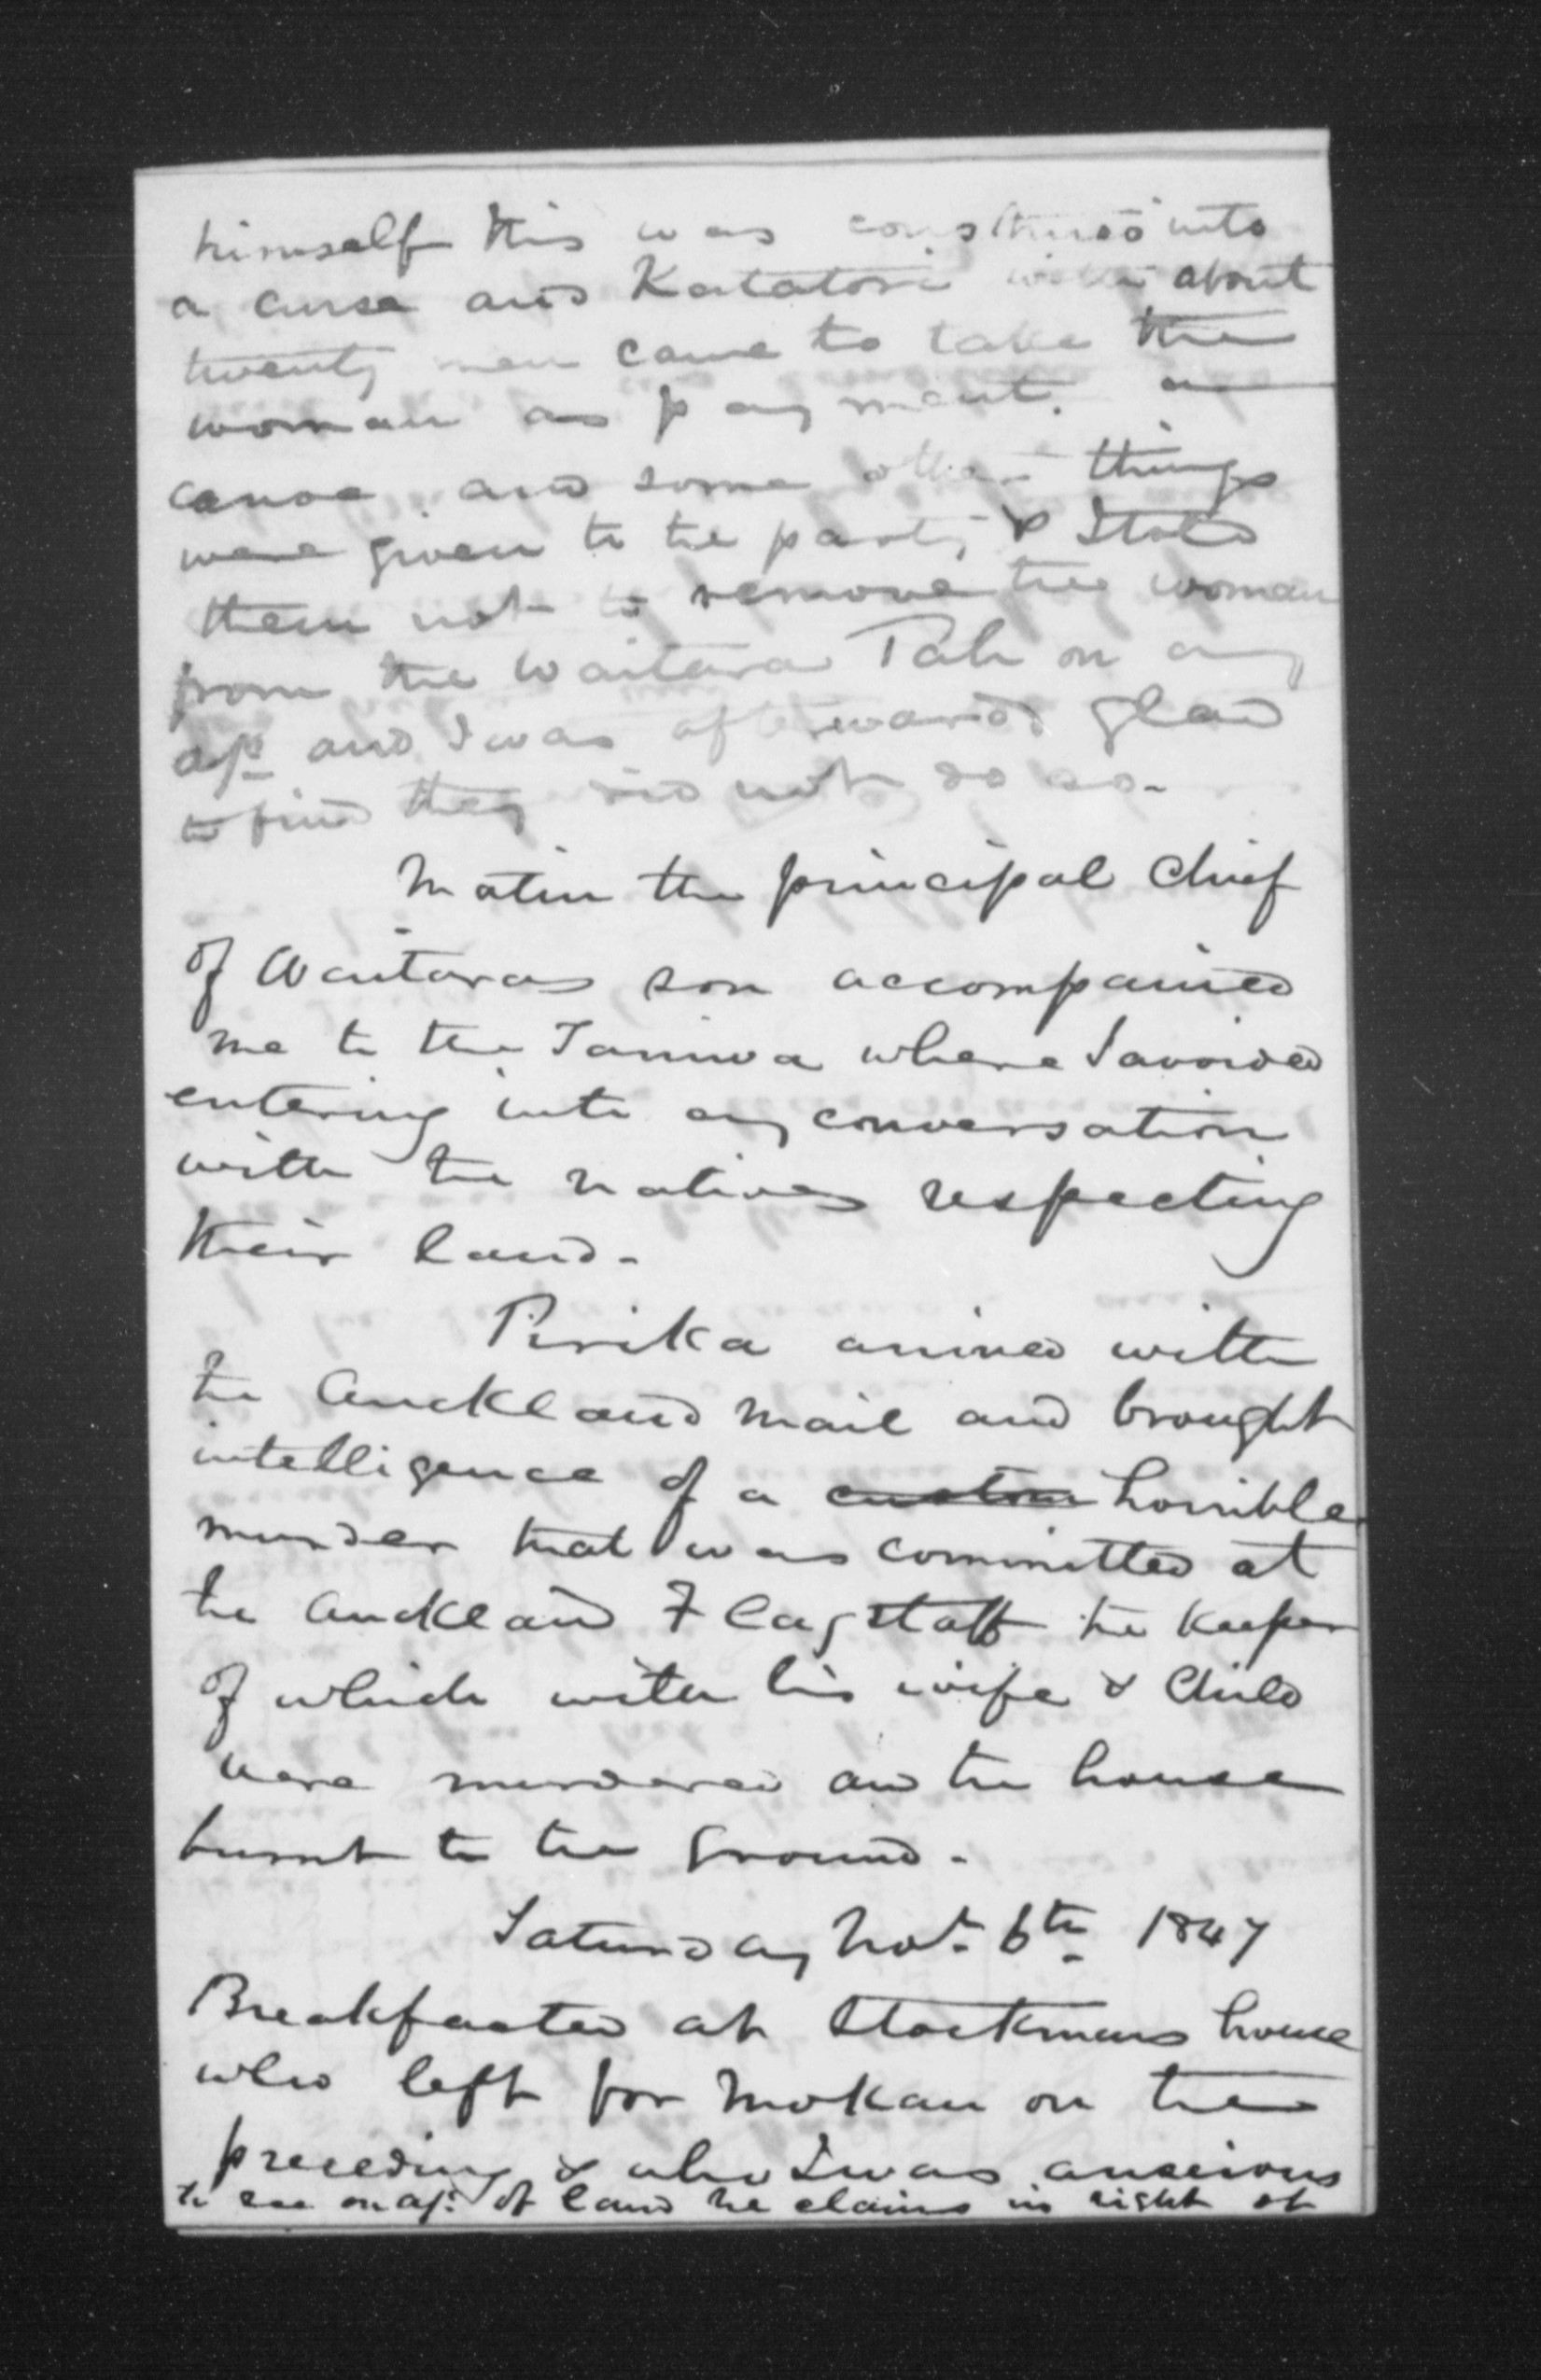 himself this was construed into
a curse and Katatori with about
twenty men came to take the
woman as payment. a
canoe and some other things
were given to the party & I told
them not to remove the woman
from the Waitara Pah on any
a/c and I was afterwards glad
to find they did not do so-
Matiu the principal chief
of Waitaras son accompanied
me to the Taniwa where I avoided
entering into any conversation
with the natives respecting
their land-
Pirika arrived with
the Auckland mail and brought
intelligence of a custom horrible
murder that was committed at
the Auckland Flagstaff the keeper
of which with his wife & child
were murdered and the house
burnt to the ground-
Saturday Nov. 6th 1847
Breakfasted at Stockmans house
who left for Mokau on the
preceding & who I was anxious
to see on a/c. of land he claims in right of